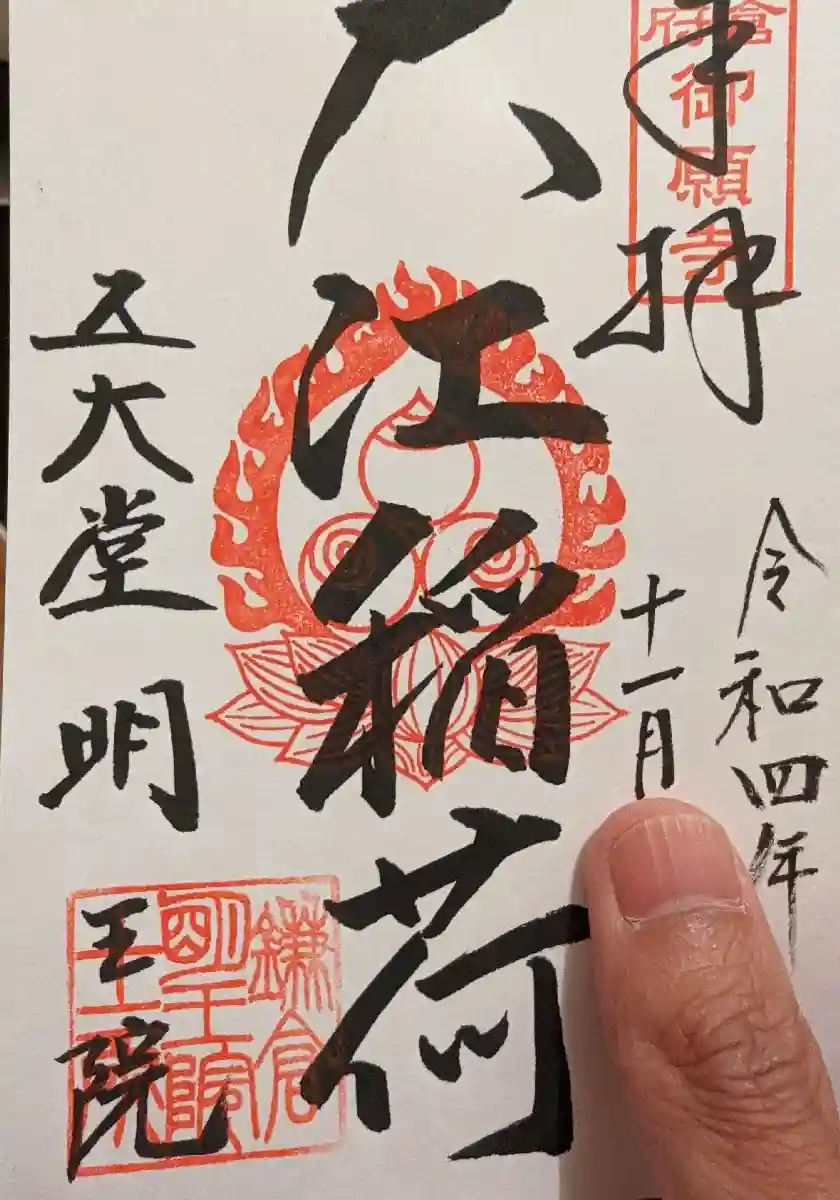 倉府御願寺
奉拝
令和四年
十一月
大江稲荷
五大堂 明王院
鎌倉
明王院